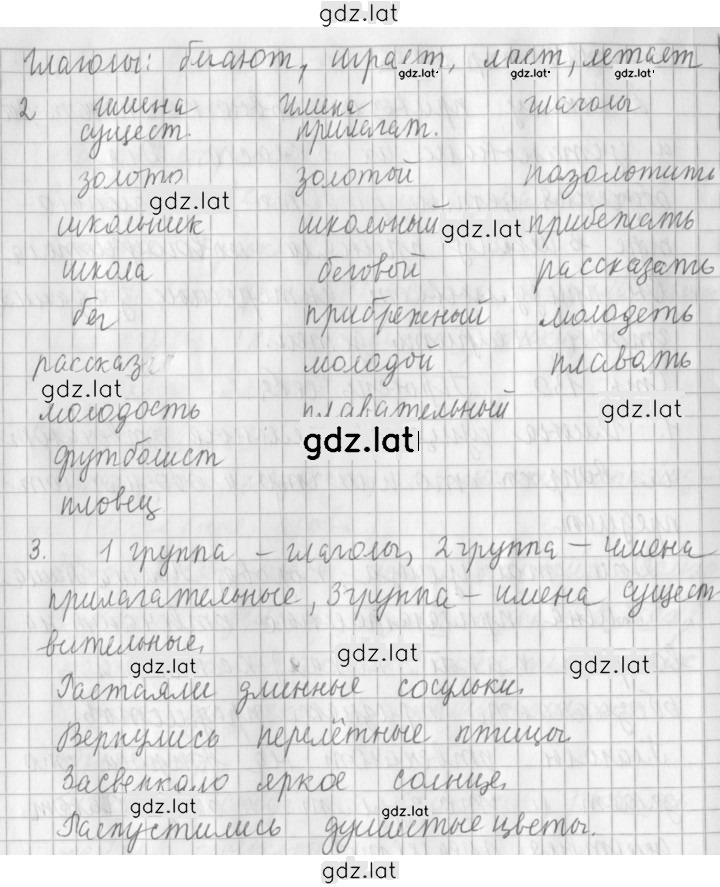 gdz.lat
Глаголы: бегают, играет, лает, летает
gdz.lat gdz.lat gdz.lat
2 имена имена глаголы
сущест. прилагат.
золото золотой позолотить
gdz.lat
школьник школьный прибежать
gdz.lat
школа беговой рассказать
бег прибрежный молодеть
рассказ молодой плавать
gdz.lat
молодость плавательный gdz.lat
gdz.lat
футболист
пловец
3. 1 группа – глаголы, 2 группа – имена
прилагательные, 3 группа – имена сущест
вительные.
gdz.lat gdz.lat gdz.lat
Растаяли длинные сосульки.
Вернулись перелётные птицы.
Засверкало яркое солнце.
gdz.lat gdz.lat
Распустились душистые цветы.
gdz.lat